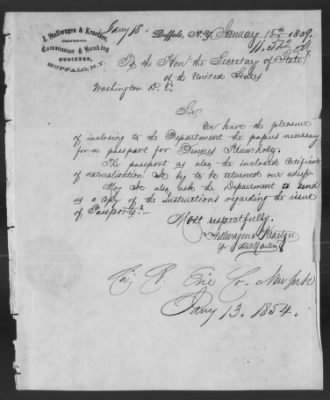 J. Stellwagen & Kraetzer,
GENERAL
Commission & Banking
BUSINESS,
BUFFALO, N.Y.
Buffalo, N.Y. January 15th
To the Hon. the Secretary of State
of the United States
Washington D. C.
Sir
We have the pleasure
of inclosing to the Department the papers necessary
for a passport for
The passport as also the inclosed Certificate
of naturalisation to be returned our
May we also ask the Department to send
us a Copy of the Instructions regarding the issue
of Passports?
Most respectfully,
Erie Co. New York
Jany 13. 1854.